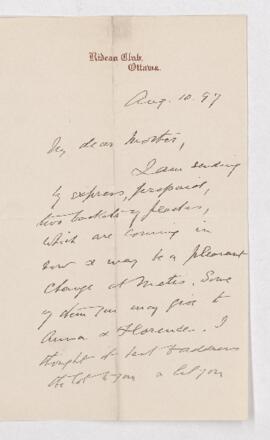 Rideau Club,
Ottawa.
Aug. 10. 97
My dear Mother,
I am sending
by express, prepaid,
two baskets of peaches,
which are coming in
now & may be a pleasant
change at Metis. Some
of them you may give to
Anna & Florence. I
thought it best to address
the lot to you & let you